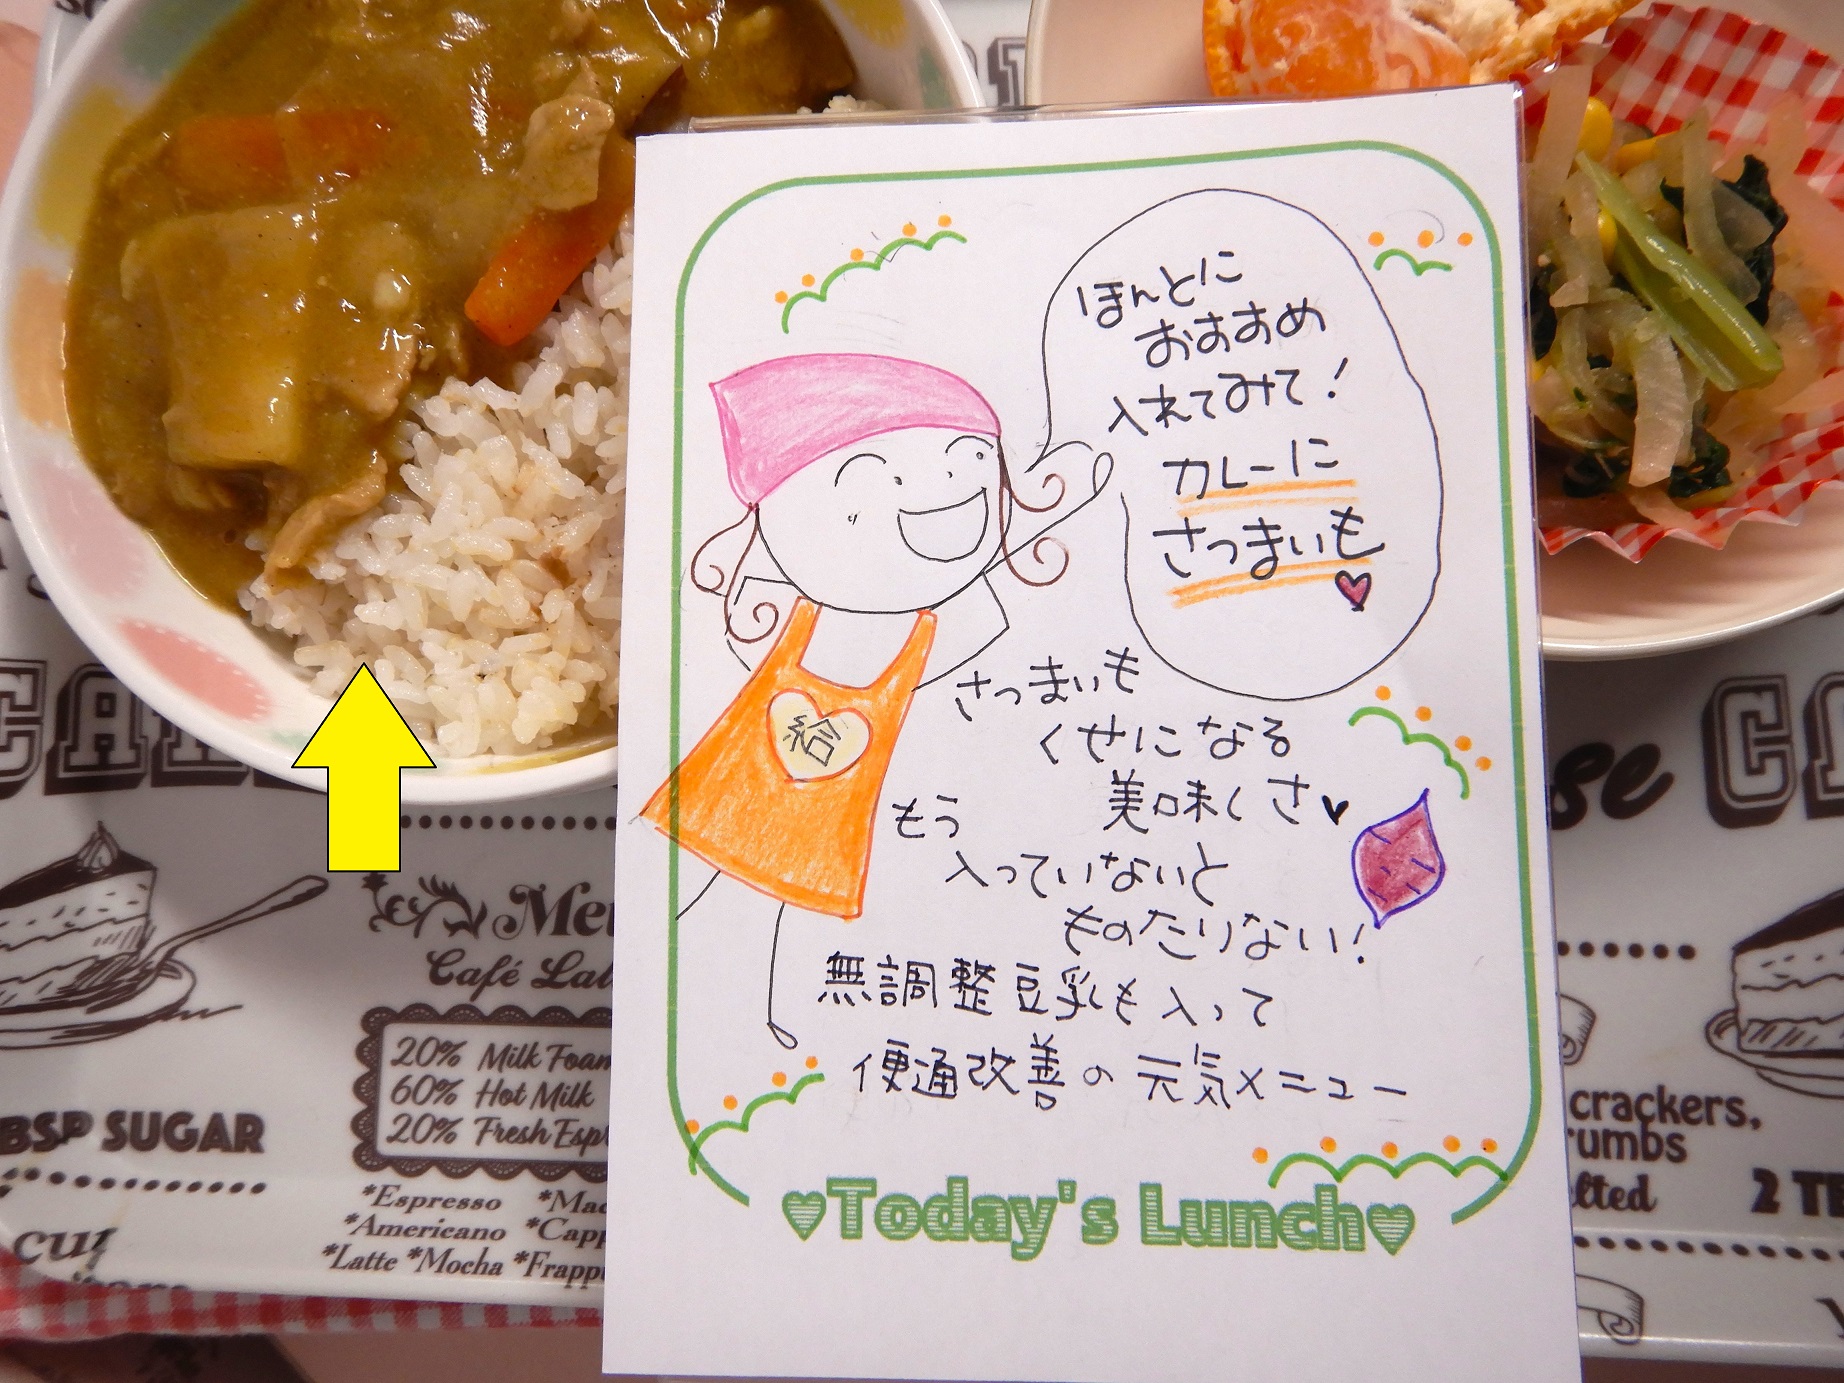 ほんとに
おすすめ
入れてみて!
カレーに
さつまいも
給
さつまいも
くせになる
美味しさ
もう
入っていないと
ものたりない!
無調整豆乳も入って
便通改善の元気メニュー
Today's Lunch
Café
20% Milk Foam
60% Hot Milk
20% Fresh
SUGAR
*Espresso
*Americano
*Latte *Mocha
crackers,